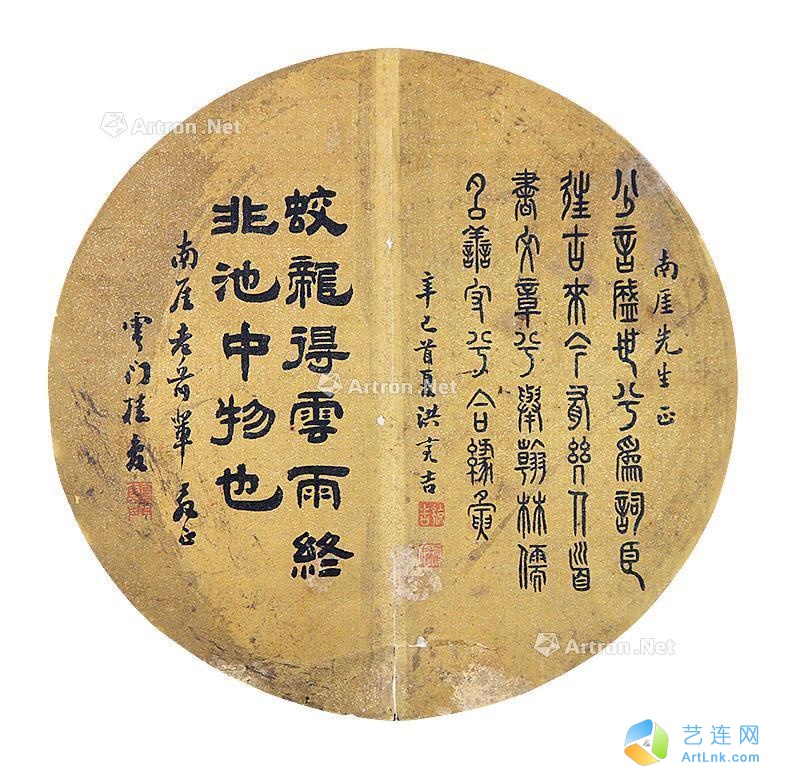 南厓先生正
公言盛世兮為詞臣
往古來今人首
書文章兮舉翰林儒
名善守兮合緣
辛巳首夏洪亮吉
蛟龍得雲雨終
非池中物也
南厓老前輩教正
雲門桂馥
Artron.Net
Artron.Net
Artron.Net
艺连网
ArtLnk.com